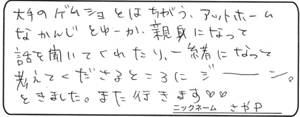 大手のゲムショとはちがう、アットホーム
なかんじとゆーか、親身になって
話を聞いてくれたり、一緒になって
考えてくださるところにジーーン。
ときました。また行きます♡♡
ニックネーム さやP